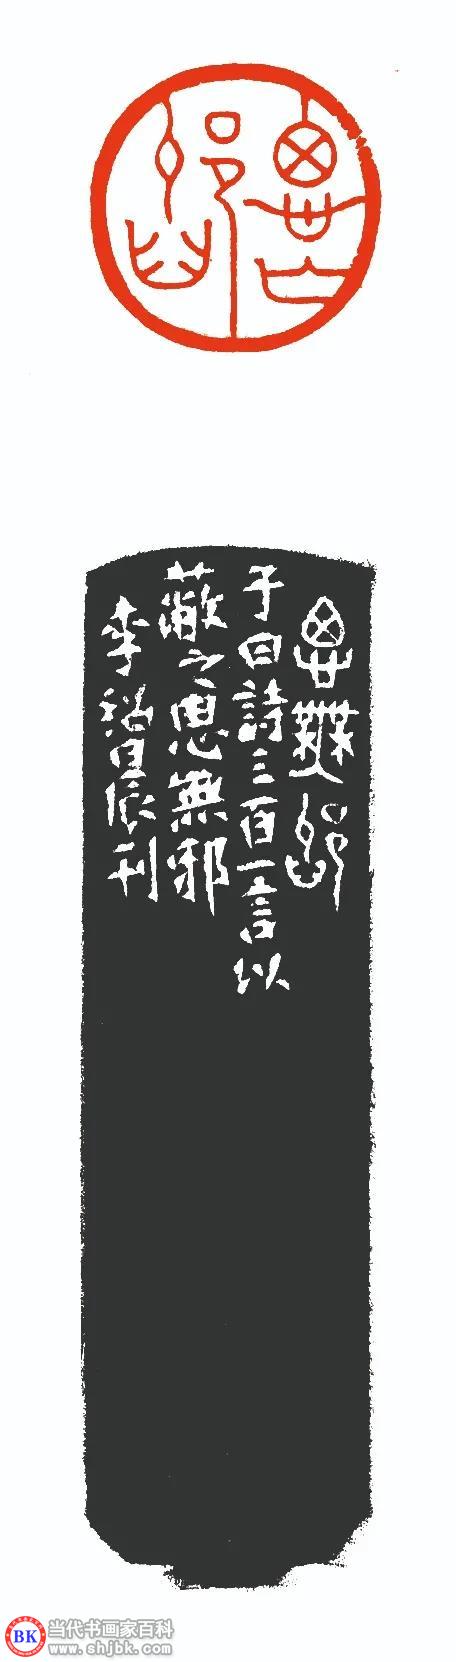 思亡邪
思無邪
子曰詩三百一言以
蔽之思無邪
李晨刊
BK
当代书画家百科
www.shjbk.com